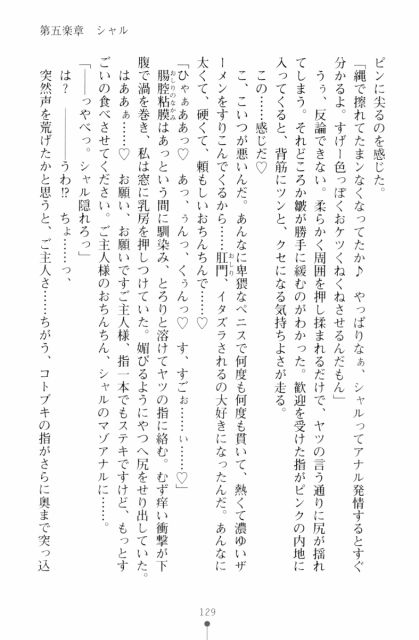 第五楽章　シャル
ピンに尖るのを感じた。
「縄で擦れてたまンなくなってたか♪　やっぱりなぁ、シャルってアナル発情するとすぐ
分かるよ。すげー色っぽくおケツくねくねさせるんだもん」
うぅ、反論できない。柔らかく周囲を押し揉まれるだけで、ヤツの言う通りに尻が揺れ
てしまう。それどころか皺が勝手に緩むのがわかった。歓迎を受けた指がピンクの内地に
入ってくると、背筋にツンと、クセになる気持ちよさが走る。
この……感じだ♡
こ、こいつが悪いんだ。あんなに卑猥なペニスで何度も何度も貫いて、熱くて濃ゆいザ
ーメンをすりこんでくるから……肛門、イタズラされるの大好きになったんだ。あんなに
おしり
太くて、硬くて、頼もしいおちんちんで……♡
「ひゃぁああっ♡　あっ、ぅんっ、くぅんっ♡　す、すごぉ……ぃ……♡」
おしりのなかみ
腸腔粘膜はあっという間に馴染み、とろりと溶けてヤツの指に絡む。むず痒い衝撃が下
腹で渦を巻き、私は窓に乳房を押しつけていた。媚びるようにやつへ尻をせり出していた。
はああぁ……♡　お願い、お願いですご主人様、指一本でもステキですけど、もっとす
ごいの食べさせてください。ご主人様のおちんちん、シャルのマゾアナルに……。
「――っやべっ。シャル隠れろっ」
は？　――うわ!?　ちょ……っ、
突然声を荒げたかと思うと、ご主人さ……ちがう、コトブキの指がさらに奥まで突っ込
129